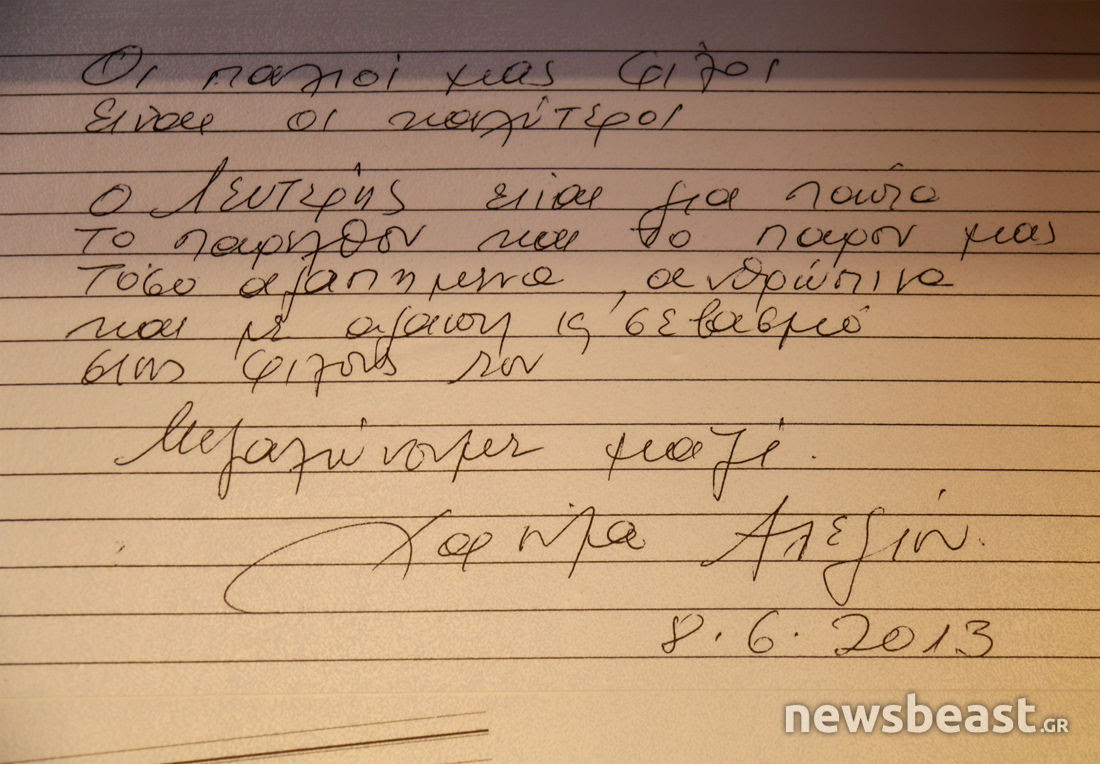 Οι παλιοί μας φίλοι
είναι οι καλύτεροι
Ο Λευτέρης είναι για πάντα
το παρελθόν και το παρόν μας
Τόσο αγαπημένα, ανθρώπινα
και με αγάπη κ' σεβασμό
στους φίλους του
Μεγαλώνουμε μαζί.
Χαρούλα Αλεξίου.
8.6.2013
newsbeast.GR